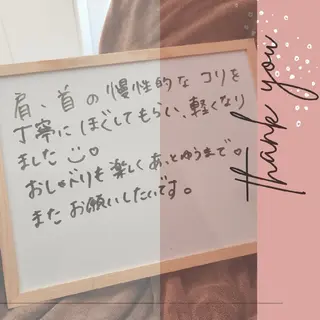 肩、首の慢性的なコリを
丁寧にほぐしてもらい、軽くなり
ました☺♡
おしゃべりも楽しくあっとゆうまで♡
またお願いしたいです。
thank you